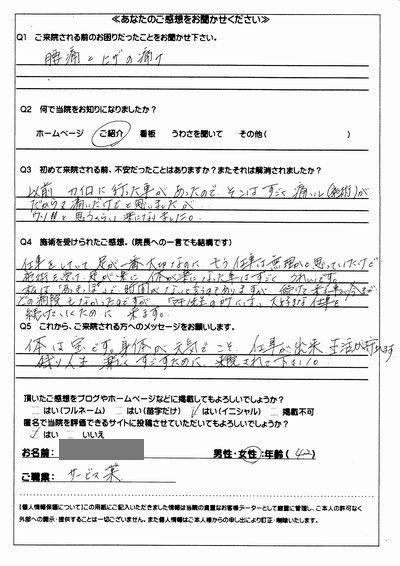 ≪あなたのご感想をお聞かせください≫
Q1 ご来院される前のお困りだったことをお聞かせ下さい。
腰痛とヒザの痛み
Q2 何で当院をお知りになりましたか?
ホームページ ご紹介 看板 うわさを聞いて その他( )
Q3 初めて来院される前、不安だったことはありますか?またそれは解消されましたか?
以前 カイロに行った事があったので、そこはすごく痛いし(施術)が
だから痛いだけでと思いましたが
ウソ!!と思うくらい楽になりました。
Q4 施術を受けられたご感想。(院長への一言でも結構です)
仕事をしていて足が一番大切なのに、もう仕事は無理かと思っていたけど
施術を受け、足が楽に 体が楽になった事はすごく うれしいです。
私は「あきっぽい」で 時間が
続けて
大好きな仕事を
続けていくために 来ます。
Q5 これから、ご来院される方へのメッセージをお願いします。
体は宝です。身体が元気でこそ、仕事が出来 生活が
残り人生 楽にすごすために、来院されて下さい。
頂いたご感想をブログやホームページなどに掲載してもよろしいでしょうか?
□はい(フルネーム) □はい(苗字だけ) ☑はい(イニシャル) □掲載不可
匿名で当院を評価できるサイトに投稿させていただいてもよろしいでしょうか?
☑はい □いいえ
お名前: 男性・女性:年齢( 42 )
ご職業: サービス業
【個人情報保護について】この用紙にご記入いただきました情報は当院の貴重なお客様データーとして厳重に管理し、ご本人の許可なく
外部への開示・提供することは一切ございません。また個人情報はご本人様からの申し出により訂正・削除いたします。